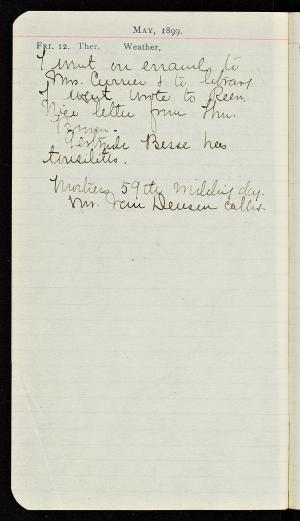 MAY, 1899.
FRI. 12. Ther. Weather,
I went on errands to
Mrs. Currier & to library
I went wrote to Reen.
Nice letter from
Gertrude Besse has
tonsilitis.
Mothers 59th wedding day.
Mr. Van Deusen calls.